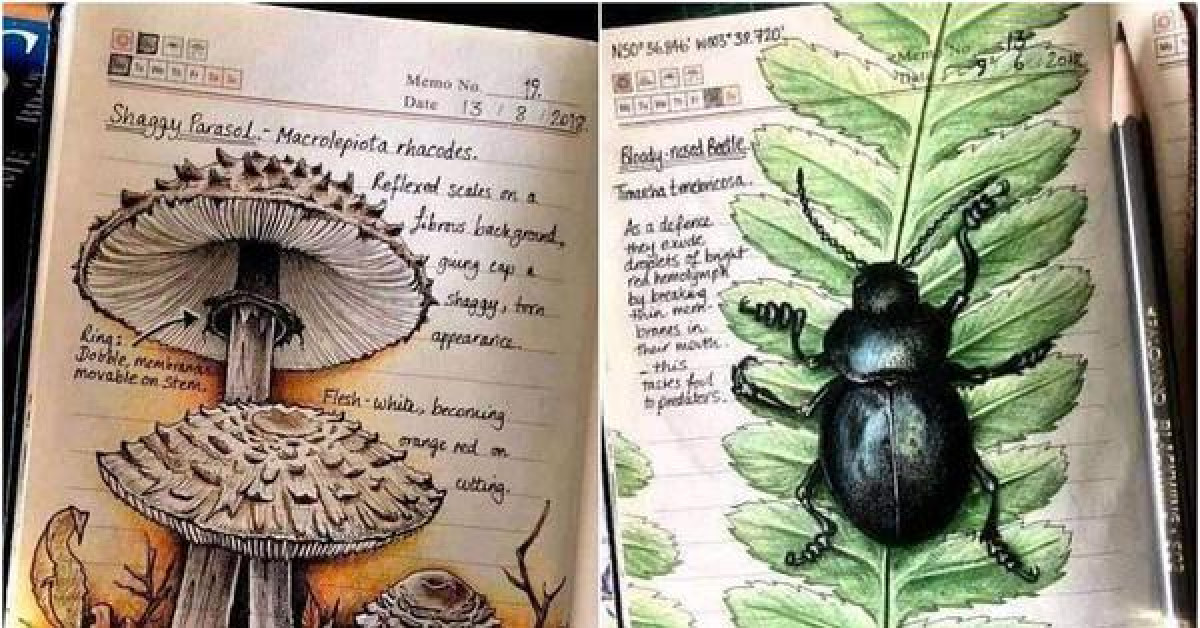 Memo No. 19.
Date 13 / 8 / 2018.
Shaggy Parasol. - Macrolepiota rhacodes.
Reflexed scales on a
fibrous background,
giving cap a
shaggy, torn
appearance.
Ring:
Double, membranous
movable on stem.
Flesh-white, becoming
orange red on
cutting.
N50° 36.846' W003° 38.720'.
Memo No. 13
Date 9 6 / 2018
Mo Tu We Th Fr
Bloody-nosed Beetle.
Timarcha tenebricosa.
As a defence
they exude
droplets of bright
red hemolymph
by breaking
thin mem-
branes in
their mouth.
- this
tastes foul
to predators.